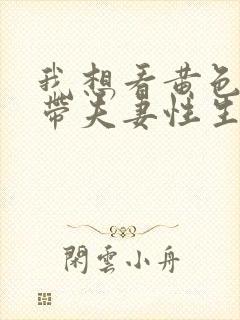 我想看黄色
带夫妻性生
閑雲小舟